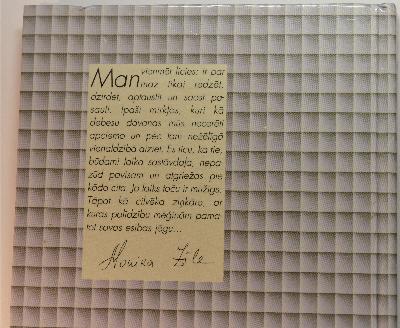 Man vienmēr licies: ir par
maz tikai redzēt,
dzirdēt, aptaustīt un saost pa-
sauli. Īpaši mirkļos, kuri kā
debesu dāvanas mūs necerēti
apciemo un pēc tam nežēlīgā
vienaldzībā aiziet. Es ticu, ka tie,
būdami laika sastāvdaļa, nepa-
zūd pavisam un atgriežas pie
kāda cita. Jo laiks taču ir mūžīgs.
Tāpat kā cilvēka ziņkāre, ar
kuras palīdzību mēģinām pama-
tot savas esības jēgu...
Monika Zīle